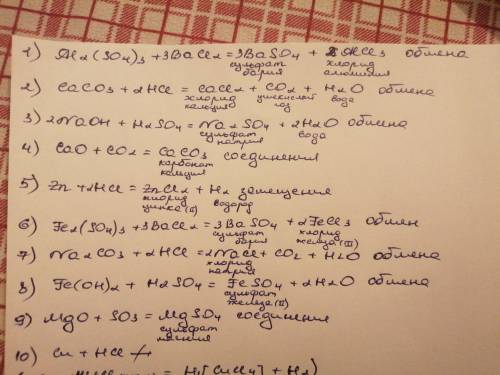 1) Al2(SO4)3 + 3BaCl2 = 3BaSO4 + 2AlCl3 обмена
сульфат бария хлорид алюминия
2) CaCO3 + 2HCl = CaCl2 + CO2 + H2O обмена
хлорид кальция углекислый газ вода
3) 2NaOH + H2SO4 = Na2SO4 + 2H2O обмена
сульфат натрия вода
4) CaO + CO2 = CaCO3 соединения
карбонат кальция
5) Zn + 2HCl = ZnCl2 + H2 замещения
хлорид цинка (II) водород
6) Fe2(SO4)3 + 3BaCl2 = 3BaSO4 + 2FeCl3 обмен
сульфат бария хлорид железа (III)
7) Na2CO3 + 2HCl = 2NaCl + CO2 + H2O обмена
хлорид натрия
8) Fe(OH)2 + H2SO4 = FeSO4 + 2H2O обмена
сульфат железа (II)
9) MgO + SO3 = MgSO4 соединения
сульфат магния
10) Cu + HCl ≠
= H2[CuCl4] + H2)